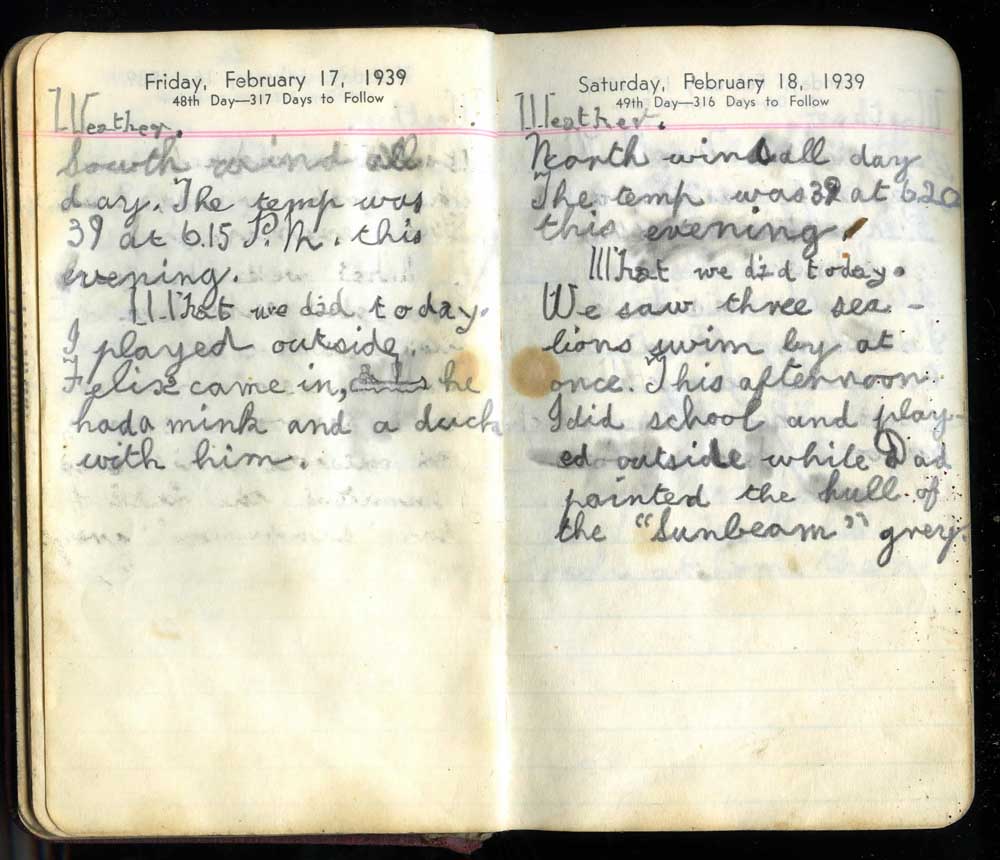 Friday, February 17, 1939
48th Day—317 Days to Follow
Weather.
South wind all
day. The temp was
39 at 6.15 P.M. this
evening.
What we did today.
I played outside.
Felix came in, he
had a mink and a duck
with him.
Saturday, February 18, 1939
49th Day—316 Days to Follow
Weather.
North wind all day
The temp was 39 at 6.20
this evening.
What we did today.
We saw three sea-
lions swim by at
once. This afternoon
I did school and play-
ed outside while Dad
painted the hull of
the "Sunbeam" grey.